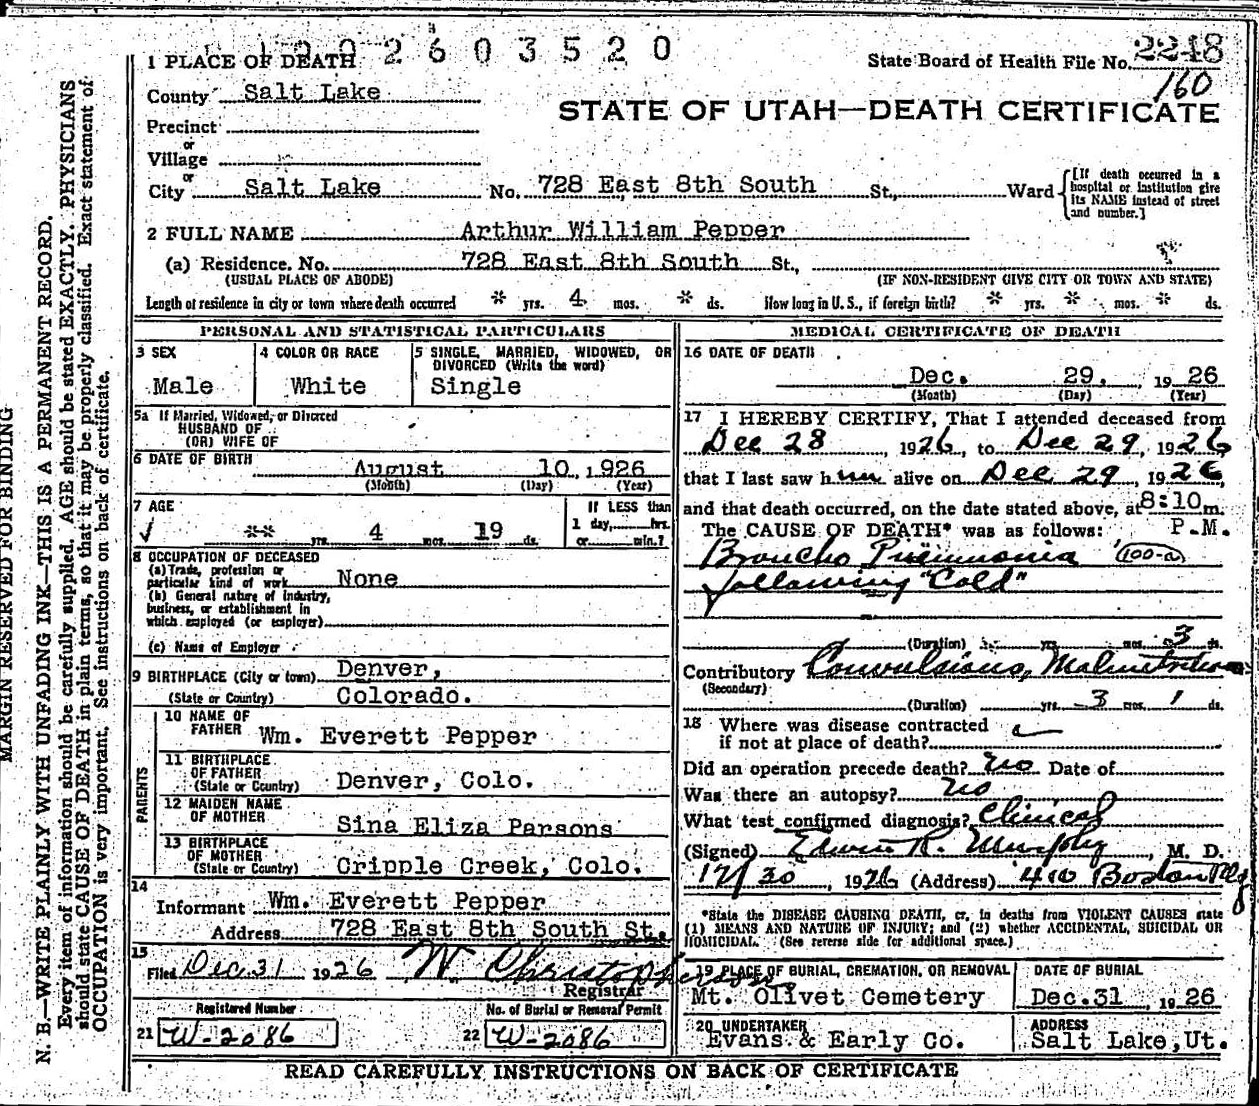 2603520
1 PLACE OF DEATH
State Board of Health File No. 2248
160
County Salt Lake
STATE OF UTAH—DEATH CERTIFICATE
Precinct
or
Village
or
City Salt Lake No. 728 East 8th South St., Ward
[If death occurred in a hospital or institution give its NAME instead of street and number.]
2 FULL NAME Arthur William Pepper
(a) Residence. No. 728 East 8th South St.,
(USUAL PLACE OF ABODE) (IF NON-RESIDENT GIVE CITY OR TOWN AND STATE)
Length of residence in city or town where death occurred * yrs. 4 mos. * ds. How long in U. S., if foreign birth? * yrs. * mos. * ds.
PERSONAL AND STATISTICAL PARTICULARS
3 SEX
Male
4 COLOR OR RACE
White
5 SINGLE, MARRIED, WIDOWED, OR DIVORCED (Write the word)
Single
5a If Married, Widowed, or Divorced
HUSBAND OF
(OR) WIFE OF
6 DATE OF BIRTH
August 10, 1926
(Month) (Day) (Year)
7 AGE
** yrs. 4 mos. 19 ds.
If LESS than
1 day, hrs.
or min.?
8 OCCUPATION OF DECEASED
(a) Trade, profession or
particular kind of work None
(b) General nature of industry,
business, or establishment in
which employed (or employer)
(c) Name of Employer
9 BIRTHPLACE (City or town) Denver,
(State or Country) Colorado.
PARENTS
10 NAME OF
FATHER Wm. Everett Pepper
11 BIRTHPLACE
OF FATHER
(State or Country) Denver, Colo.
12 MAIDEN NAME
OF MOTHER
Sina Eliza Parsons
13 BIRTHPLACE
OF MOTHER
(State or Country) Cripple Creek, Colo.
14
Informant Wm. Everett Pepper
Address 728 East 8th South St.
15
Filed Dec 31 1926 W. Christopherson
Registrar
Registered Number
21 W-2086
No. of Burial or Removal Permit
22 W-2086
MEDICAL CERTIFICATE OF DEATH
16 DATE OF DEATH
Dec. 29, 1926
(Month) (Day) (Year)
17 I HEREBY CERTIFY, That I attended deceased from
Dec 28, 1926, to Dec 29, 1926
that I last saw him alive on Dec 29, 1926,
and that death occurred, on the date stated above, at 8:10 m.
The CAUSE OF DEATH* was as follows: P.M.
Broncho Pneumonia (100-a)
following "Cold"
(Duration) yrs. mos. 3 ds.
Contributory Convulsions, Malnutrition
(Secondary)
(Duration) yrs. 3 mos. 1 ds.
18 Where was disease contracted
if not at place of death?
Did an operation precede death? no Date of
Was there an autopsy? No
What test confirmed diagnosis? Clinical
(Signed) Edwin R. Murphy, M. D.
12/30, 1926 (Address) 410 Boston Bldg
*State the DISEASE CAUSING DEATH, or, in deaths from VIOLENT CAUSES state
(1) MEANS AND NATURE OF INJURY; and (2) whether ACCIDENTAL, SUICIDAL OR
HOMICIDAL. (See reverse side for additional space.)
19 PLACE OF BURIAL, CREMATION, OR REMOVAL
Mt. Olivet Cemetery
DATE OF BURIAL
Dec.31 1926
20 UNDERTAKER
Evans & Early Co.
ADDRESS
Salt Lake, Ut.
READ CAREFULLY INSTRUCTIONS ON BACK OF CERTIFICATE
MARGIN RESERVED FOR BINDING
N. B.—WRITE PLAINLY WITH UNFADING INK—THIS IS A PERMANENT RECORD.
Every item of information should be carefully supplied. AGE should be stated EXACTLY. PHYSICIANS
should state CAUSE OF DEATH in plain terms, so that it may be properly classified. Exact statement of
OCCUPATION is very important. See instructions on back of certificate.